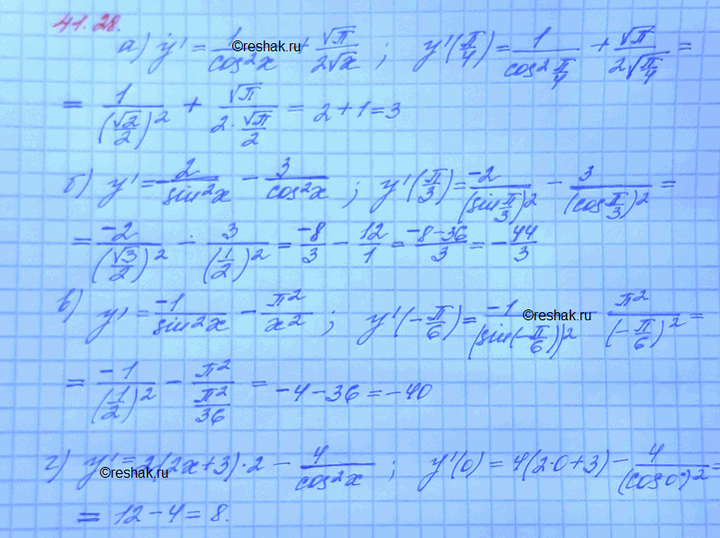 41.28.
а) y' = 1/cos²x + √π/(2√x) ; y'(π/4) = 1/cos² π/4 + √π/(2√(π/4)) =
= 1/(√2/2)² + √π/(2·√π/2) = 2+1=3
б) y' = -2/sin²x - 3/cos²x ; y'(π/3) = -2/(sin π/3)² - 3/(cos π/3)² =
= -2/(√3/2)² - 3/(1/2)² = -8/3 - 12/1 = (-8-36)/3 = -44/3
в) y' = -1/sin²x - π²/x² ; y'(-π/6) = -1/(sin(-π/6))² - π²/(-π/6)² =
= -1/(1/2)² - π²/(π²/36) = -4-36 = -40
г) y' = 2(2x+3)·2 - 4/cos²x ; y'(0) = 4(2·0+3) - 4/(cos0)² =
= 12-4 = 8.
©reshak.ru
©reshak.ru
©reshak.ru